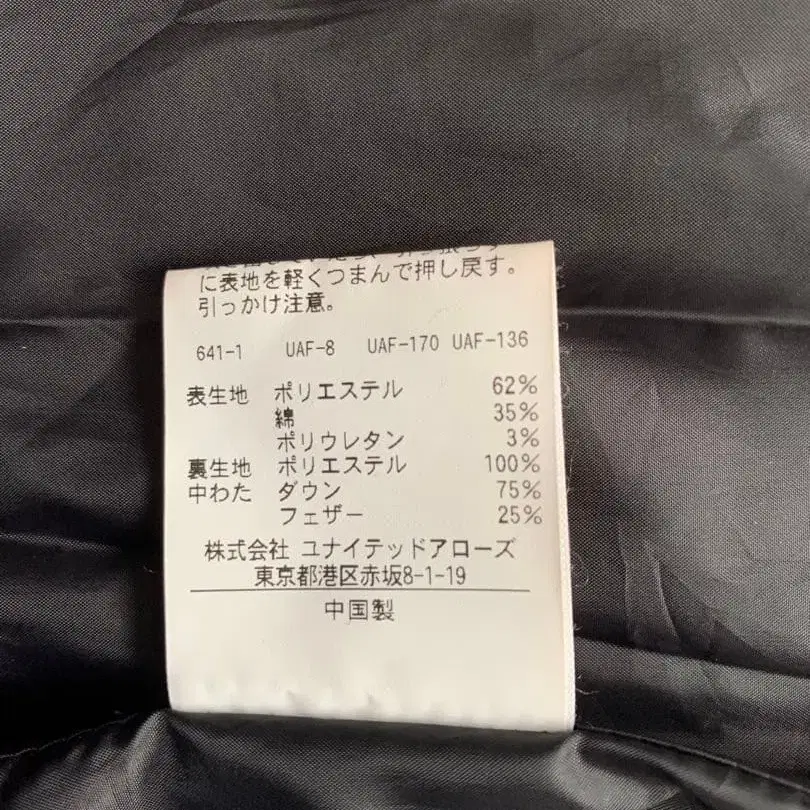 に表地を軽くつまんで押し戻す。
引っかけ注意。
641-1 UAF-8 UAF-170 UAF-136
表生地 ポリエステル 62%
綿 35%
ポリウレタン 3%
裏生地 ポリエステル 100%
中わた ダウン 75%
フェザー 25%
株式会社 ユナイテッドアローズ
東京都港区赤坂8-1-19
中国製